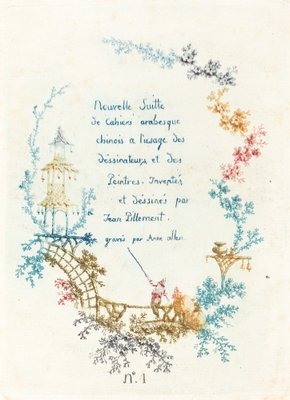 Nouvelle Suitte
de Cahiers arabesque
chinois a l'usage des
déssinateurs et des
Peintres. Inventés
et déssinés par
Jean Pillement.
gravés par Anne allen.
N°. 1